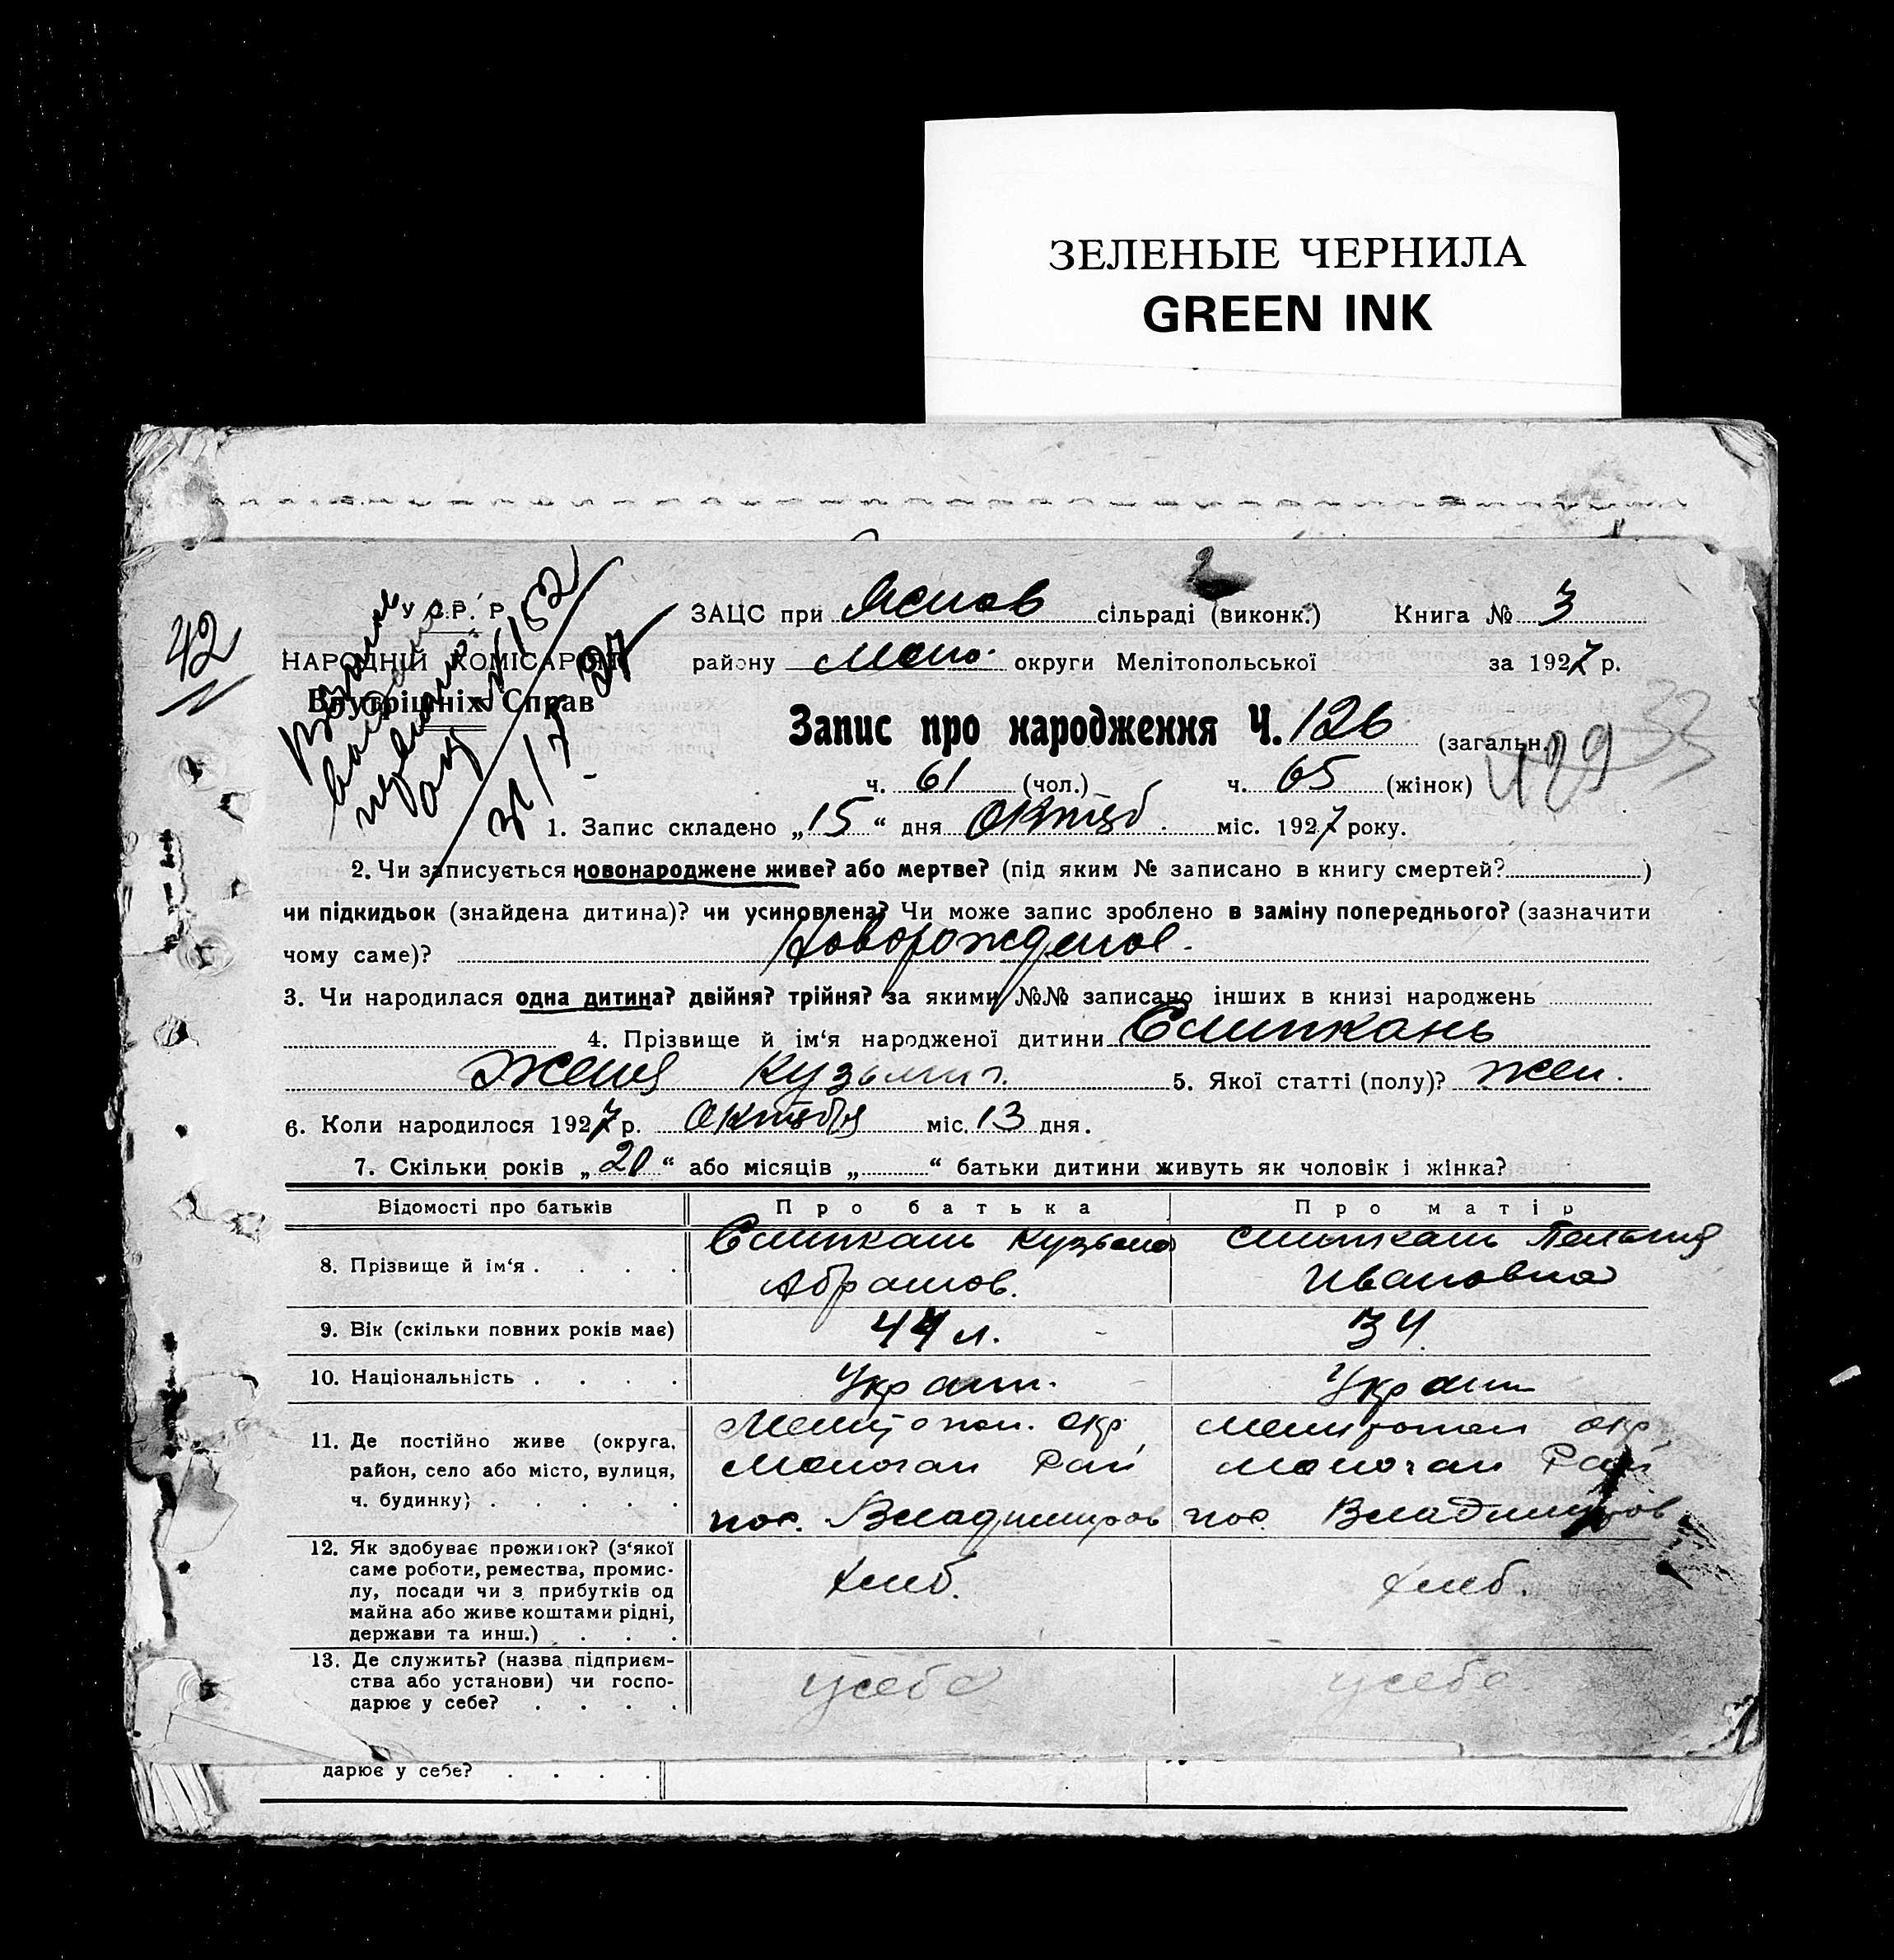 ЗЕЛЕНЫЕ ЧЕРНИЛА
GREEN INK
42
У.С.Р.Р.
НАРОДНІЙ КОМІСАРІЯТ
Внутрішніх Справ
ЗАЦС при сільраді (виконк.) Книга № 3
району округи Мелітопольської за 1927 р.
Запис про народження Ч. 126 (загальн.)
429
ч. 61 (чол.) ч. 65 (жінок)
1. Запис складено „15“ дня Октяб. міс. 1927 року.
2. Чи записується новонароджене живе? або мертве? (під яким № записано в книгу смертей? )
чи підкидьок (знайдена дитина)? чи усиновлена? Чи може запис зроблено в заміну попереднього? (зазначити
чому саме)? Новорожденое.
3. Чи народилася одна дитина? двійня? трійня? за якими №№ записано інших в книзі народжень
4. Прізвище й ім‘я народженої дитини Слипкань
Женя Кузьмин. 5. Якої статті (полу)? жен.
6. Коли народилося 1927 р. Октября міс. 13 дня.
7. Скільки років „20“ або місяців „ “ батьки дитини живуть як чоловік і жінка?
Відомості про батьків Про батька Про матір
8. Прізвище й ім‘я . . . . Слипкань Кузьма Абрамов. Слипкань Пелагия Ивановна
9. Вік (скільки повних років має) 44 л. 34.
10. Національність . . . . Украин. Украин
11. Де постійно живе (округа, район, село або місто, вулиця, ч. будинку) . . . . . Мелитопол. окр. Рай пос. Владимиров Мелитопол окр. Рай пос. Владимиров
12. Як здобуває прожиток? (з‘якої саме роботи, ремества, промислу, посади чи з прибутків од майна або живе коштами рідні, держави та инш.) . . . хлеб. хлеб.
13. Де служить? (назва підприємства або установи) чи господарює у себе? . . . . усебе усебе.
дарює у себе? . . . .